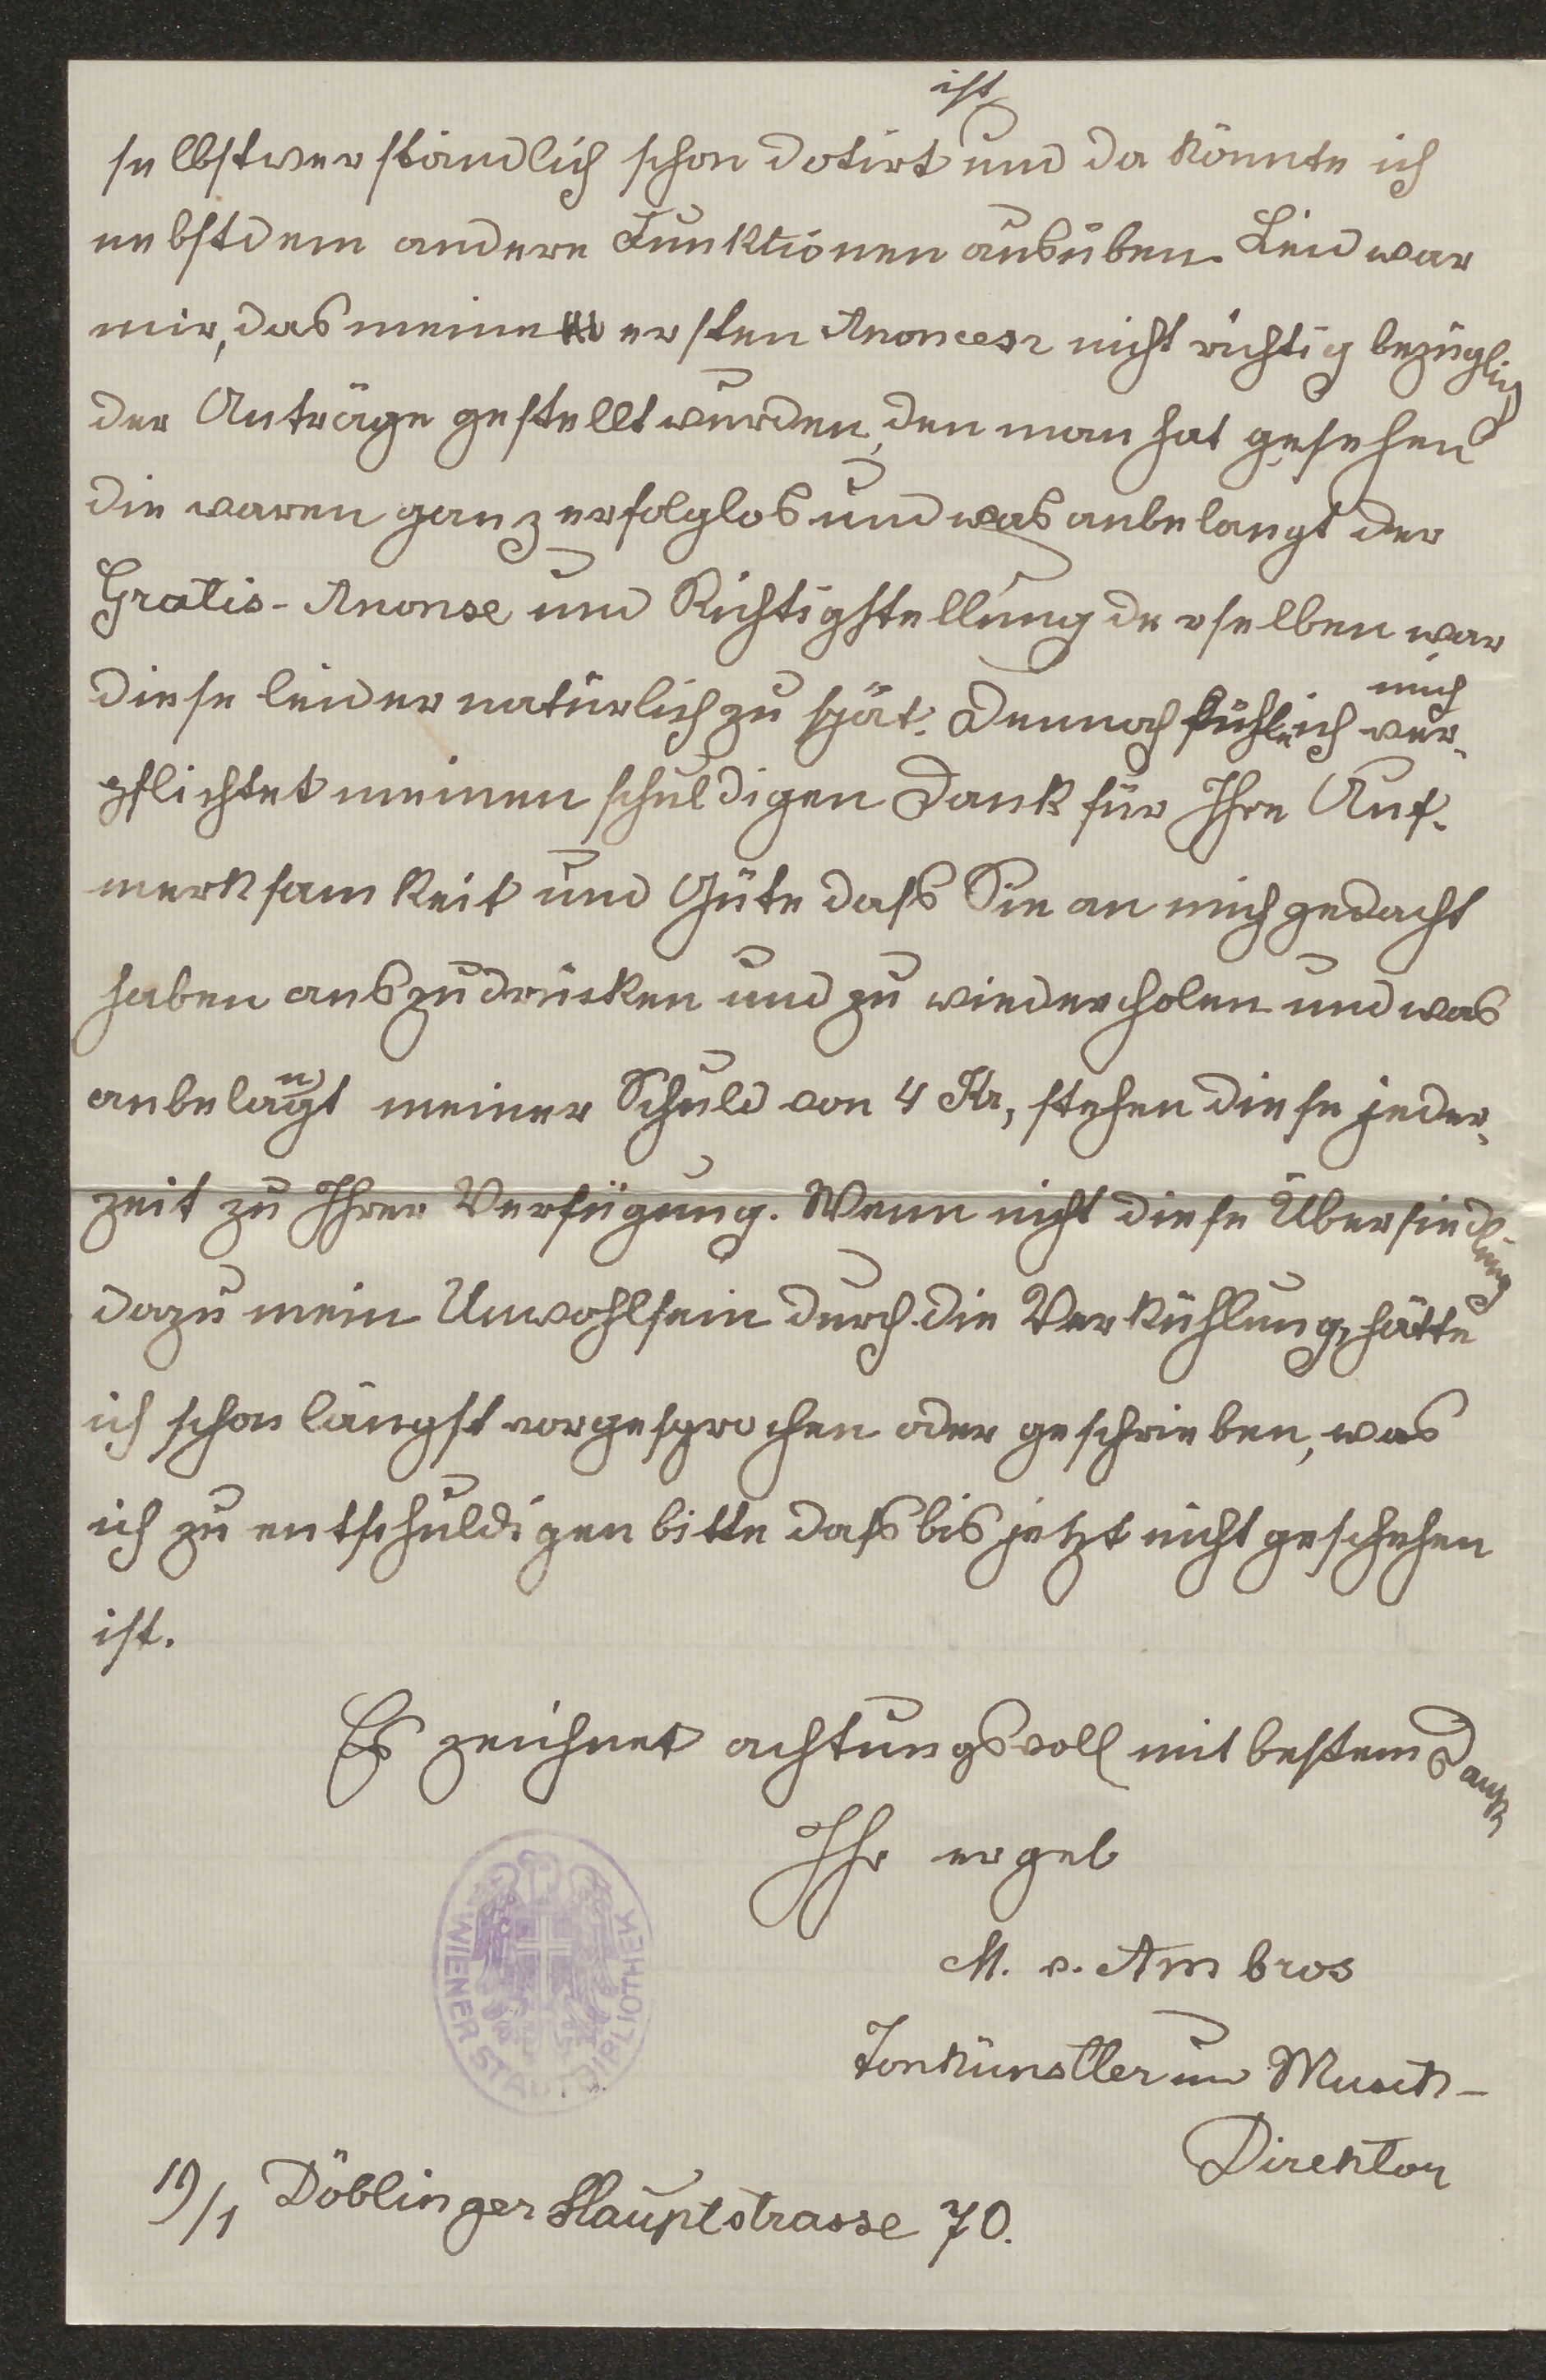 selbstverständlich schon dotirt ist und da könnte ich
nebstdem andere Funktionen ausüben. Leid war
mir, das meine ersten Anoncen nicht richtig bezüglich
der Anträge gestellt wurden, den man hat gesehen
die waren ganz erfolglos und was anbelangt der
Gratis-Anonse und Richtigstellung derselben war
diese leider natürlich zu spät. Dennoch fühle ich mich ver-
pflichtet meinen schuldigen Dank für Ihre Auf-
merksamkeit und Güte dass Sie an mich gedacht
haben auszudrücken und zu wiedercholen und was
anbelangt meiner Schuld von 4 Kr, stehen diese jeder-
zeit zu Ihrer Verfügung. Wenn nicht diese Übersiedlung
dazu mein Unwohlsein durch die Verkühlung, hätte
ich schon längst vorgesprochen oder geschrieben, was
ich zu entschuldigen bitte dass bis jetzt nicht geschehen
ist.
Es zeichnet achtungsvoll mit bestem Dank
Ihr ergeb
M. v. Ambros
Tonkünstler und Musik-
Direktor
19/1 Döblinger Hauptstrasse 70.
WIENER STADTBIBLIOTHEK